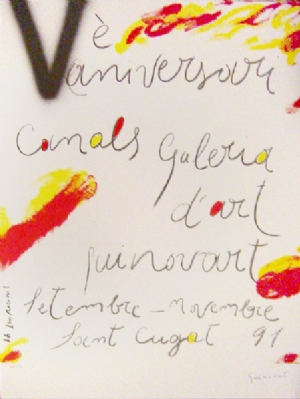 Vè
aniversari
Canals Galeria
d'art
guinovart
Setembre - Novembre
Sant Cugat 91